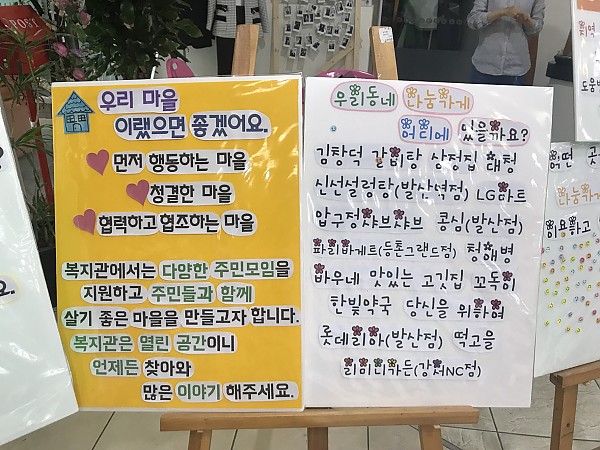 POST
우리 마을
이랬으면 좋겠어요.
먼저 행동하는 마을
청결한 마을
협력하고 협조하는 마을
복지관에서는 다양한 주민모임을
지원하고 주민들과 함께
살기 좋은 마을을 만들고자 합니다.
복지관은 열린 공간이니
언제든 찾아와
많은 이야기 해주세요.
우리동네 나눔가게
어디에 있을까요?
김창덕 갈비탕 삼정집 해청
신선설렁탕(발산역점) LG하트
압구정샤브샤브 콩심(발산점)
파리바게트(등촌그랜드점) 청해병
바우네 맛있는 고깃집 꼬독이
한빛약국 당신을 위하여
롯데리아(발산점) 떡고을
리미니가든(강서NC점)
요.